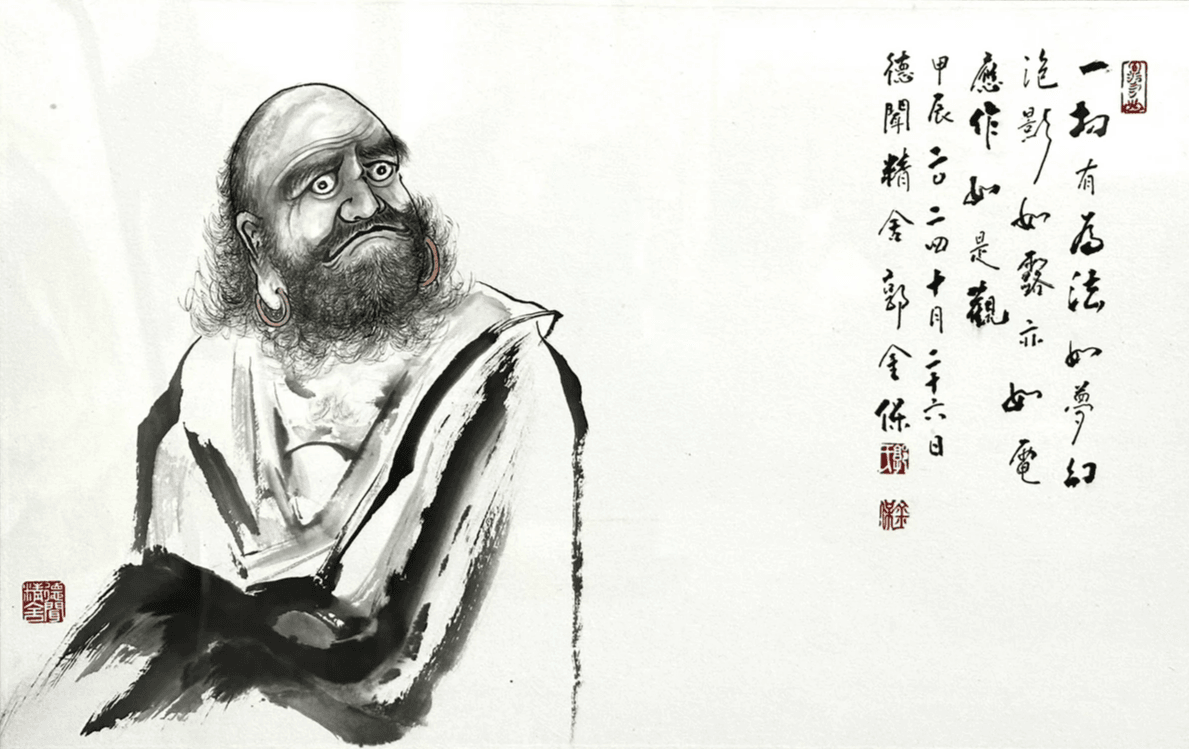 一切有為法如夢幻
泡影如露亦如電
應作如是觀
甲辰二〇二四十月二十六日
德聞精舍郭金保
郭氏
金保
德聞精舍